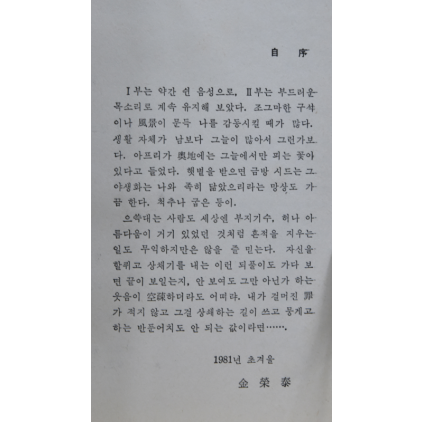 自 序
Ⅰ부는 약간 쉰 음성으로, Ⅱ부는 부드러운
목소리로 계속 유지해 보았다. 조그마한 구석
이나 風景이 문득 나를 감동시킬 때가 많다.
생활 자체가 남보다 그늘이 많아서 그런가보
다. 아프리카 奧地에는 그늘에서만 피는 꽃이
있다고 들었다. 햇볕을 받으면 금방 시드는 그
야생화는 나와 족히 닮았으리라는 망상도 가
끔 한다. 척추나 굽은 등이.
으쓱대는 사람도 세상엔 부지기수, 허나 아
름다움이 거기 있었던 것처럼 흔적을 지우는
일도 무익하지만은 않을 줄 믿는다. 자신을
할퀴고 상채기를 내는 이런 되풀이도 가다 보
면 끝이 보일는지, 안 보여도 그만 아닌가 하는
웃음이 空疎하더라도 어떠랴. 내가 걸머진 罪
가 적지 않고 그걸 상쇄하는 길이 쓰고 뭉게고
하는 반둔어치도 안 되는 값이라면…….
1981년 초겨울
金 榮 泰